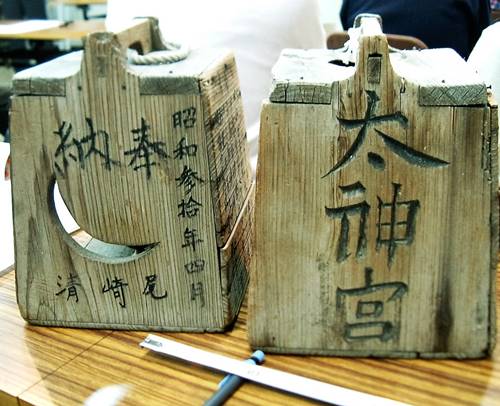 奉納
昭和参拾年四月
尾崎清
太神宮